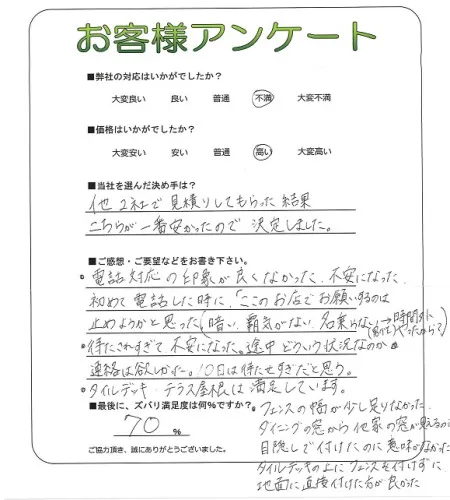 お客様アンケート
■弊社の対応はいかがでしたか？
大変良い 良い 普通 不満 大変不満
■価格はいかがでしたか？
大変安い 安い 普通 高い 大変高い
■当社を選んだ決め手は？
他2社で見積りしてもらった結果
こちらが一番安かったので決定しました。
■ご感想・ご要望などをお書き下さい。
・電話対応の印象が良くなかった、不安になった
初めて電話した時に、「ここのお店でお願いするのは
止めようかと思った（暗い、覇気がない、名乗らない→時間外
だったからか）
・待たされすぎて不安になった。途中どういう状況なのか
連絡は欲しかった。10日は待たせすぎだと思う。
・タイルデッキ・テラス屋根は満足しています。
■最後に、ズバリ満足度は何％ですか？
70 ％
ご協力頂き、誠にありがとうございました。
フェンスの幅が少し足りなかった。
ダイニングの窓から他家の窓が見えるの
目隠しで付けたのに意味がなかった
タイルデッキの上にフェンスを付けずに
地面に直接付けた方が良かった